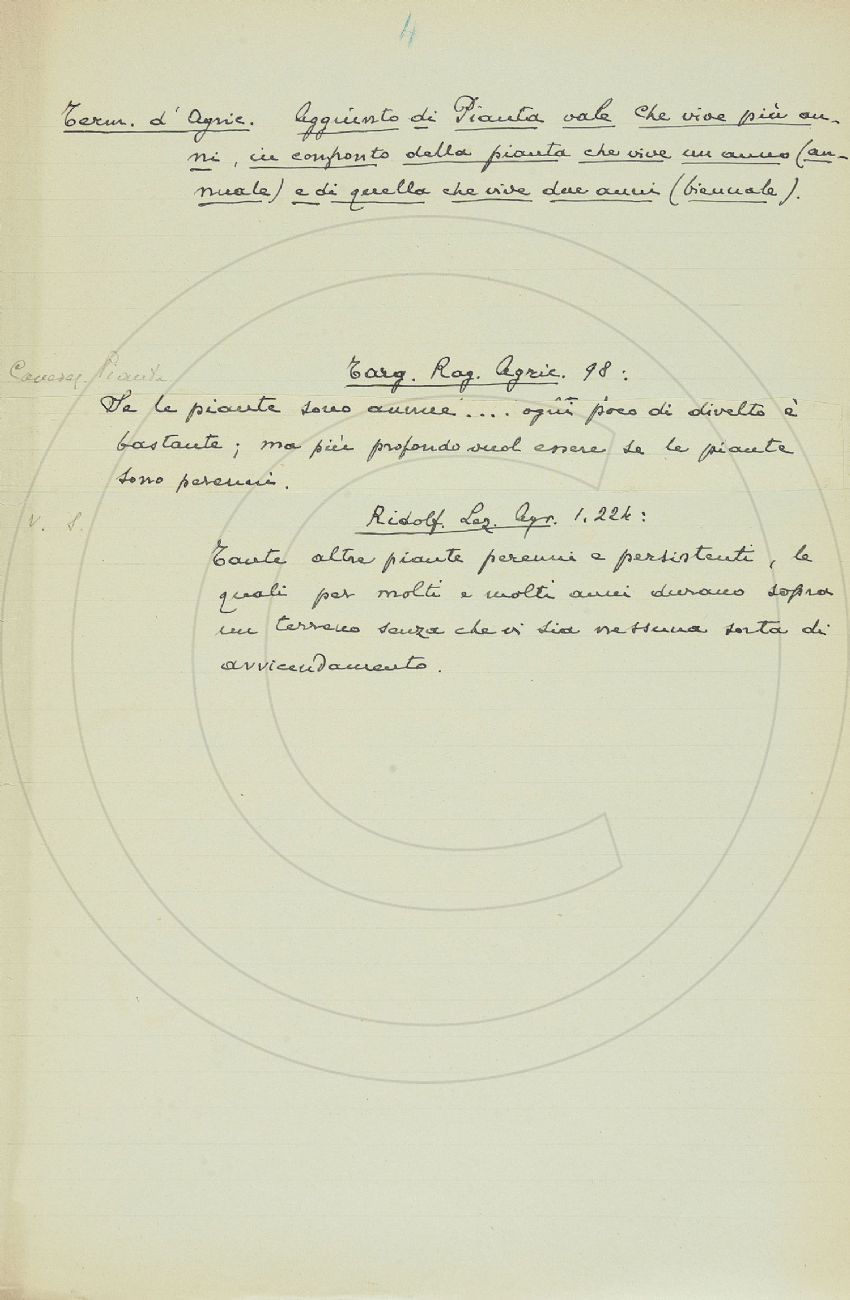 4
Term. d' Agric. Aggiunto di Pianta vale Che vive più an-
ni, in confronto della pianta che vive un anno (an-
nuale) e di quella che vive due anni (biennale).
Targ. Rag. Agric. 98:
Se le piante sono annue .... ogni poco di divelto è
bastante; ma più profondo vuol essere se le piante
sono perenni.
V. S.
Ridolf. Lez. Agr. 1. 224:
Tante altre piante perenni e persistenti, le
quali per molti e molti anni durano sopra
un terreno senza che vi sia nessuna sorta di
avvicendamento.